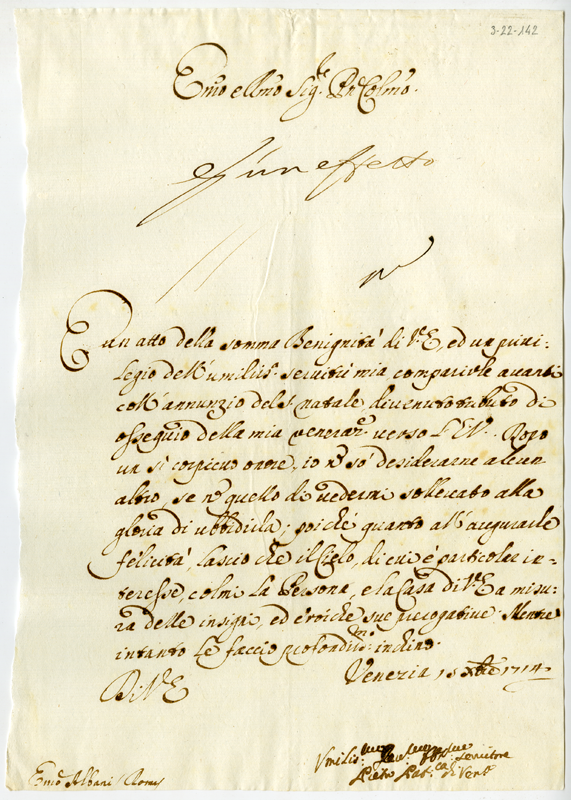 3-22-142
Emo e Rmo Sig.re Pne Colmo.
È un effetto
È un atto della somma Benignità di V.E, ed un privi-
legio dell'umiliss. servitù mia comparirle avanti
coll'annunzio del S. Natale, divenuto tributo di
ossequio della mia veneraz. verso l'EV. Dopo
un sì cospicuo onore, io nō sò desiderarne alcun
altro, se nō quello di vedermi sollevato alla
gloria di ubbidirla; poiché quanto all'augurarle
felicità, lascio che il Cielo, di cui è particolar in-
teresse, colmi la Persona, e la Casa di V.E a misu-
ra delle insigni, ed eroiche sue prerogative. Mentre
intanto le faccio profondiss.mo inchino.
Venezia 15 Xbre 1714
Di V.E
Umilis.mo Servitore
Pietro Pat.ca di Ven.a
Emo Albani / Roma